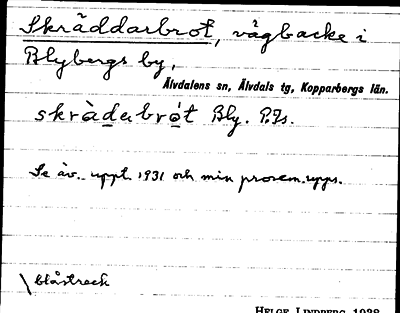 Skräddarbrot, vägbacke i
Blybergs by,
Älvdalens sn, Älvdals tg, Kopparbergs län.
skràdabrót Bly. P.Js.
Se äv. uppt. 1931 och min prosem.upps.
\ blåstreck
HELGE LINDBERG 1938